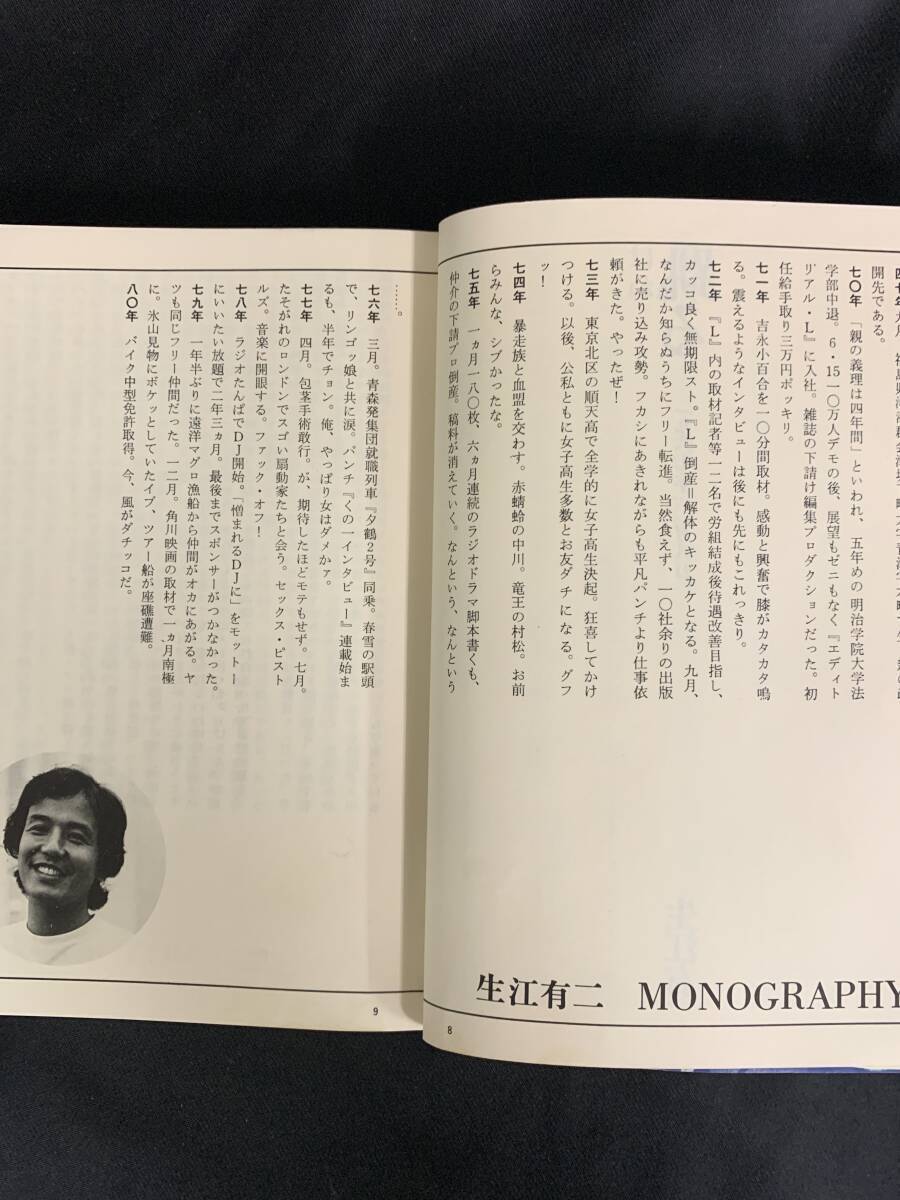 開先である。
七〇年 「親の義理は四年間」といわれ、五年めの明治学院大学法
学部中退。6・15一〇万人デモの後、展望もゼニもなく『エディト
リアル・L』に入社。雑誌の下請け編集プロダクションだった。初
任給手取り三万円ポッキリ。
七一年 吉永小百合を一〇分間取材。感動と興奮で膝がカタカタ鳴
る。震えるようなインタビューは後にも先にもこれっきり。
七二年 『L』内の取材記者等一二名で労組結成後待遇改善目指し、
カッコ良く無期限スト。『L』倒産=解体のキッカケとなる。九月、
なんだか知らぬうちにフリー転進。当然食えず、一〇社余りの出版
社に売り込み攻勢。フカシにあきれながらも平凡パンチより仕事依
頼がきた。やったぜ!
七三年 東京北区の順天高で全学的に女子高生決起。狂喜してかけ
つける。以後、公私ともに女子高生多数とお友ダチになる。グフ
ッ!
七四年 暴走族と血盟を交わす。赤蜻蛉の中川。竜王の村松。お前
らみんな、シブかったな。
七五年 一ヵ月一八〇枚、六ヵ月連続のラジオドラマ脚本書くも、
仲介の下請プロ倒産。稿料が消えていく。なんという、なんという
8
生江有二 MONOGRAPHY
……。
七六年 三月。青森発集団就職列車『夕鶴2号』同乗。春雪の駅頭
で、リンゴッ娘と共に涙。パンチ『くの一インタビュー』連載始ま
るも、半年でチョン。俺、やっぱり女はダメかァ。
七七年 四月。包茎手術敢行。が、期待したほどモテもせず。七月。
たそがれのロンドンでスゴい扇動家たちと会う。セックス・ピスト
ルズ。音楽に開眼する。ファック・オフ!
七八年 ラジオたんぱでDJ開始。「憎まれるDJに」をモットー
にいいたい放題で二年三ヵ月。最後までスポンサーがつかなかった。
七九年 一年半ぶりに遠洋マグロ漁船から仲間がオカにあがる。ヤ
ツも同じフリー仲間だった。一二月。角川映画の取材で一ヵ月南極
に。氷山見物にボケッとしていたイブ、ツアー船が座礁遭難。
八〇年 バイク中型免許取得。今、風がダチッコだ。
9